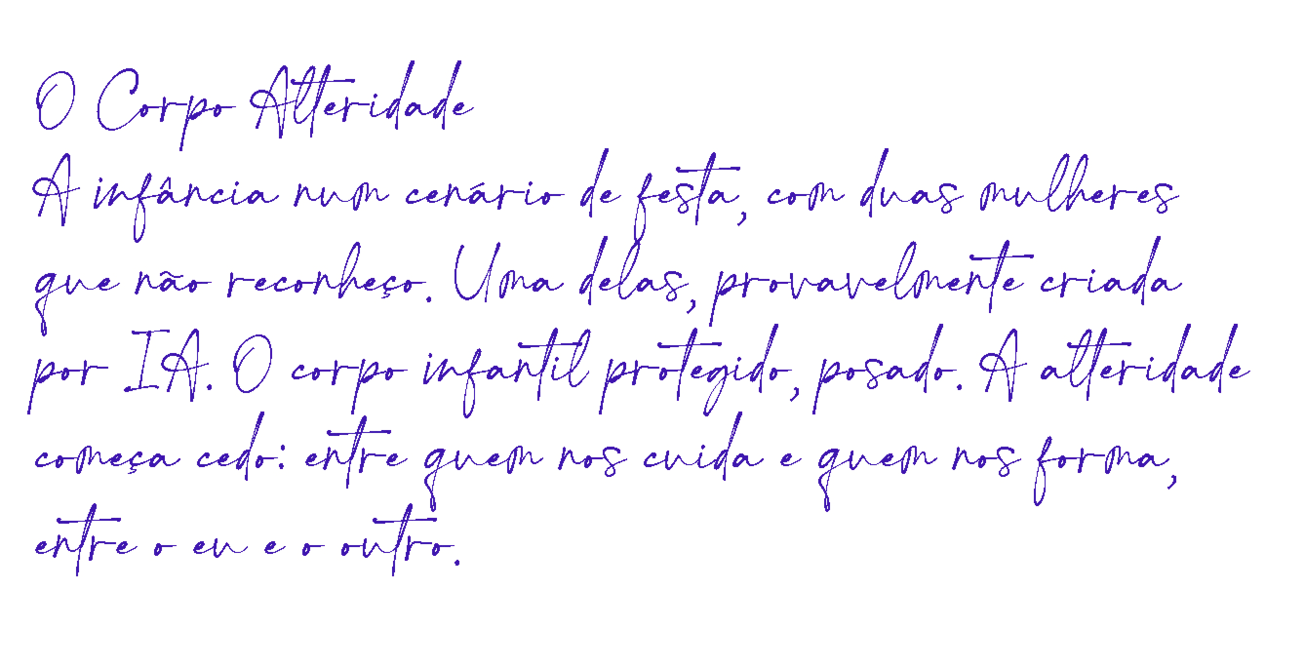 O Corpo Alteridade
A infância num cenário de festa, com duas mulheres
que não reconheço. Uma delas, provavelmente criada
por IA. O corpo infantil protegido, posado. A alteridade
começa cedo: entre quem nos cuida e quem nos forma,
entre o eu e o outro.